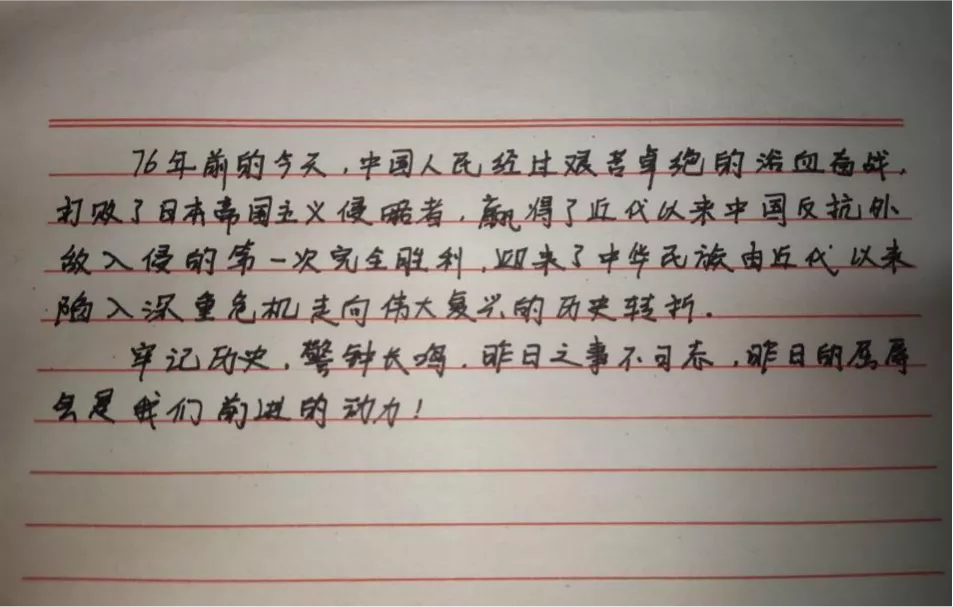 76年前的今天，中国人民经过艰苦卓绝的浴血奋战，
打败了日本帝国主义侵略者，赢得了近代以来中国反抗外
敌入侵的第一次完全胜利，迎来了中华民族由近代以来
陷入深重危机走向伟大复兴的历史转折.
牢记历史，警钟长鸣，昨日之事不可忘，昨日的屈辱
会是我们前进的动力！